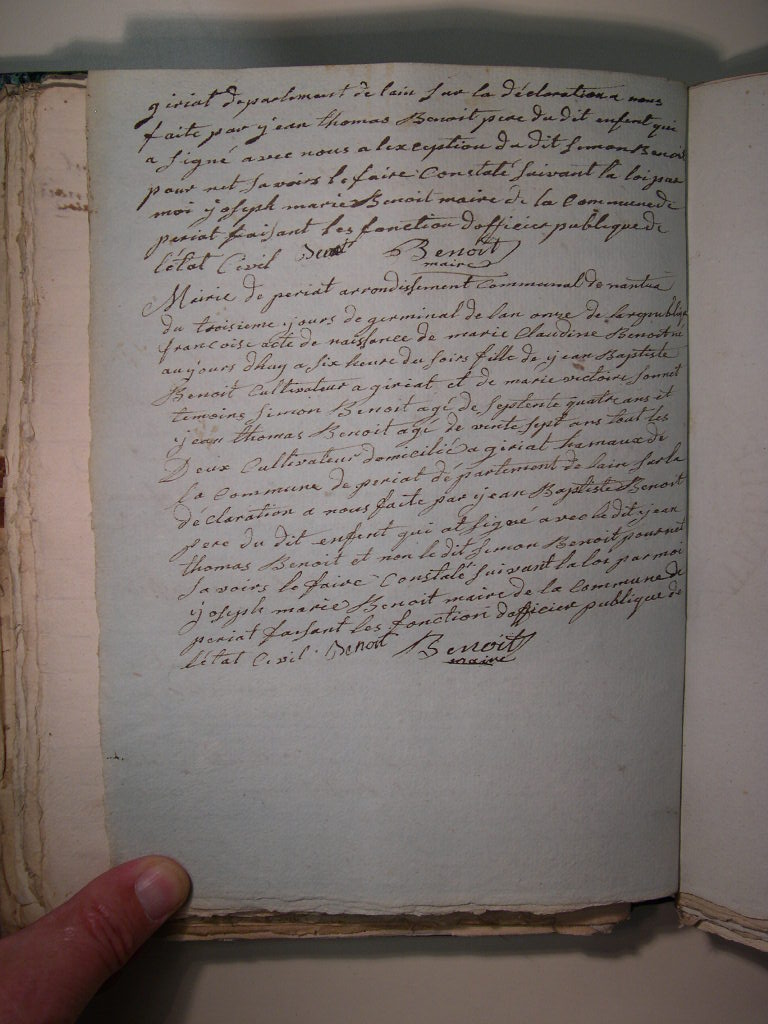 giriat departement de lain sur la déclaration a nous
faite par jean thomas Benoit pere du dit enfent qui
a signé avec nous a lexception du dit Simon Benoit
pour net savoirs le faire Constaté suivant la loi par
moi joseph marie Benoit maire de la Commune de
periat faisant les fonction dofficier publique de
létat Civil Benoit Benoit
maire
Mairie de periat arrondissement Communal de nantua
du troisieme jours de germinal de lan onze de la republique
francoise acte de naissance de marie Claudine Benoit né
aujours dhuy a six heure du soirs fille de jean Baptiste
Benoit Cultivateur a giriat et de marie victoire sonnet
temoins Simon Benoit agé de septente quatre ans et
jean thomas Benoit agé de vente sept ans tout les
Deux Cultivateur domicilié a giriat hamaux de
la Commune de periat département de lain sur la
déclaration a nous faite par jean Baptiste Benoit
pere du dit enfent qui at signé avec le dit jean
thomas Benoit et non le dit Simon Benoit pour net
savoirs le faire Constaté suivant la loi par moi
joseph marie Benoit maire de la Commune de
periat faisant les fonction dofficier publique de
létat Civil Benoit Benoit
maire